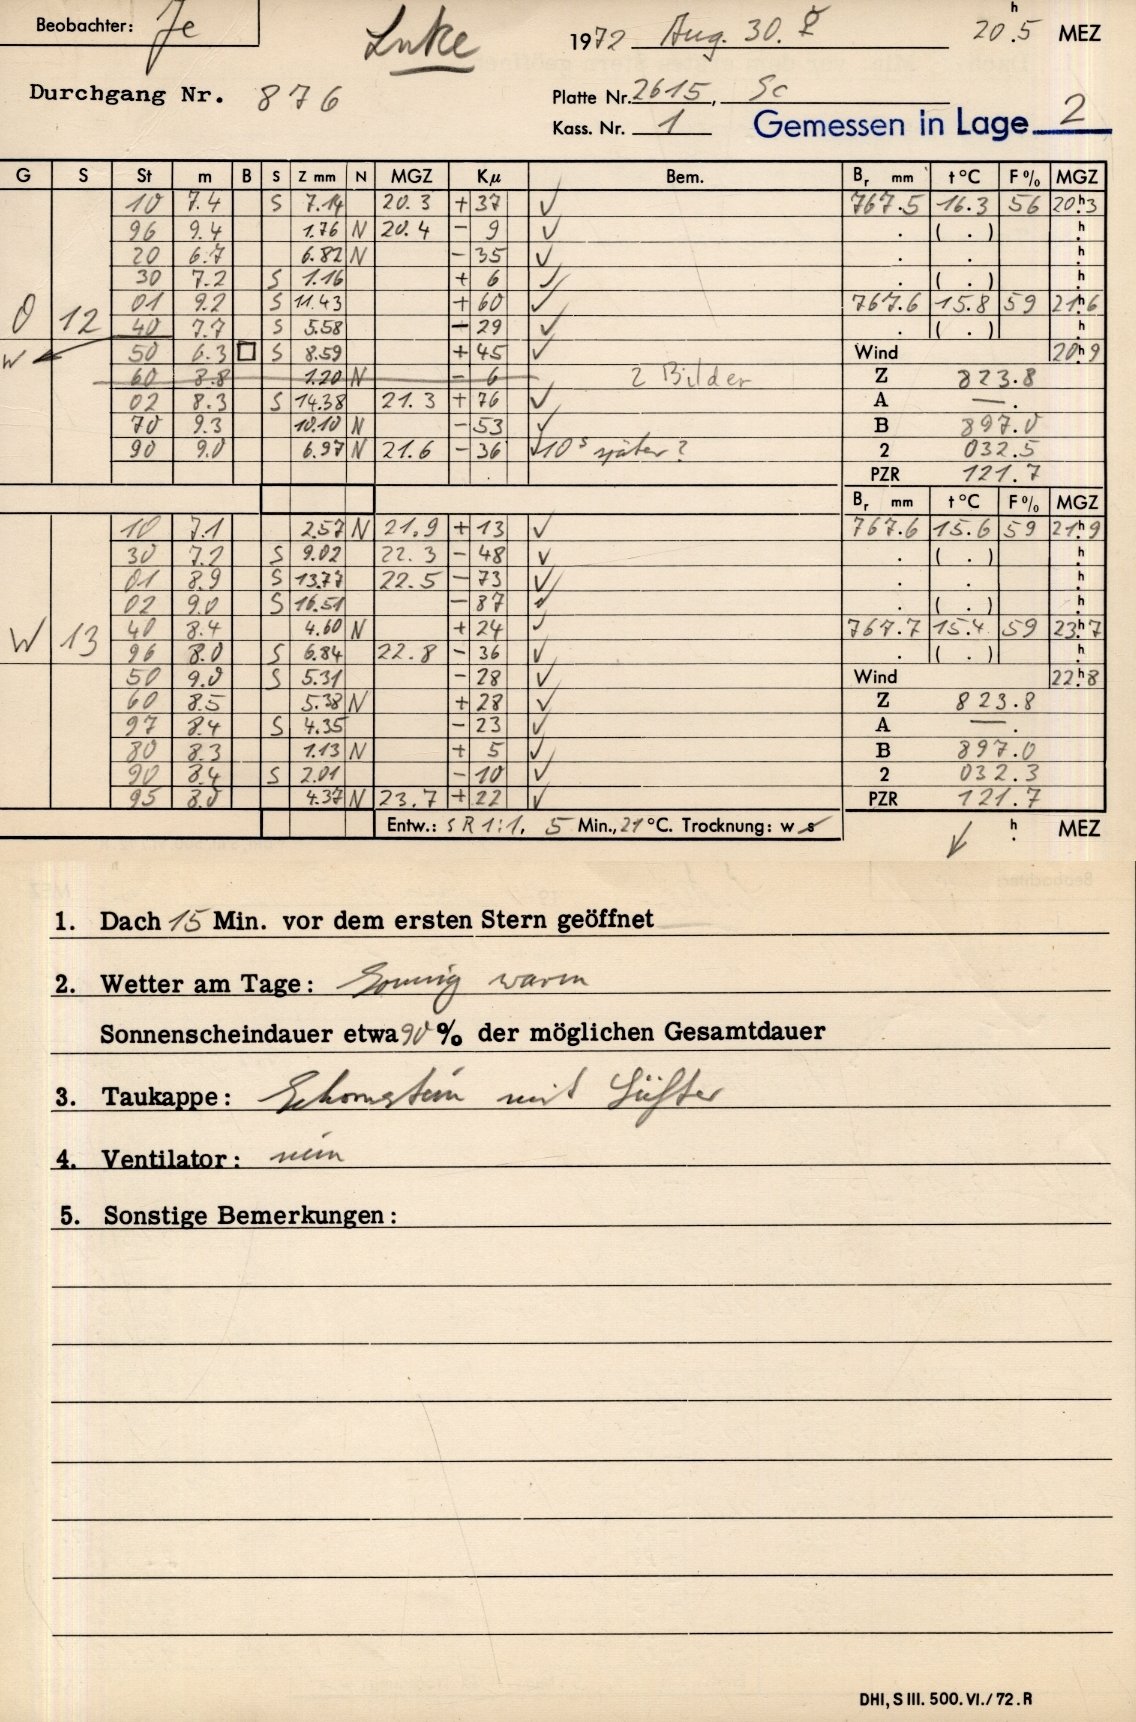 Beobachter: Je
Luke
1972 Aug. 30. ☿ 20.5 h MEZ
Durchgang Nr. 876
Platte Nr. 2615, Sc
Kass. Nr. 1
Gemessen in Lage 2
G S St m B S Z mm N MGZ Kμ Bem. Br mm t °C F % MGZ
10 7.4 S 7.14 20.3 + 37 ✓ 767.5 16.3 56 20h3
96 9.4 1.76 N 20.4 - 9 ✓ . ( . ) h
20 6.7 6.82 N - 35 ✓ . . h
30 7.2 S 1.16 + 6 ✓ . ( . ) h
O 12 01 9.2 S 11.43 + 60 ✓ 767.6 15.8 59 21h6
40 7.7 S 5.58 - 29 ✓ . ( . ) h
W 50 6.3 □ S 8.59 + 45 ✓ Wind 20h9
60 8.8 1.20 N - 6 2 Bilder Z 823.8
02 8.3 S 14.38 21.3 + 76 ✓ A — .
70 9.3 10.10 N - 53 ✓ B 897.0
90 9.0 6.97 N 21.6 - 36 ✓ 10s später? 2 032.5
PZR 121.7
Br mm t °C F % MGZ
10 7.1 2.57 N 21.9 + 13 ✓ 767.6 15.6 59 21h9
30 7.2 S 9.02 22.3 - 48 ✓ . ( . ) h
01 8.9 S 13.77 22.5 - 73 ✓ . . h
02 9.0 S 16.51 - 87 ✓ . ( . ) h
W 13 40 8.4 4.60 N + 24 ✓ 767.7 15.4 59 23h7
96 8.0 S 6.84 22.8 - 36 ✓ . ( . ) h
50 9.0 S 5.31 - 28 ✓ Wind 22h8
60 8.5 5.38 N + 28 ✓ Z 823.8
97 8.4 S 4.35 - 23 ✓ A — .
80 8.3 1.13 N + 5 ✓ B 897.0
90 8.4 S 2.01 - 10 ✓ 2 032.3
95 8.0 4.37 N 23.7 + 22 ✓ PZR 121.7
Entw.: SR 1:1, 5 Min., 21 °C. Trocknung: w s h . MEZ
1. Dach 15 Min. vor dem ersten Stern geöffnet
2. Wetter am Tage: Sonnig warm
Sonnenscheindauer etwa 90 % der möglichen Gesamtdauer
3. Taukappe: Schornstein mit Lüfter
4. Ventilator: nein
5. Sonstige Bemerkungen:
DHI, S III. 500. VI./72. R